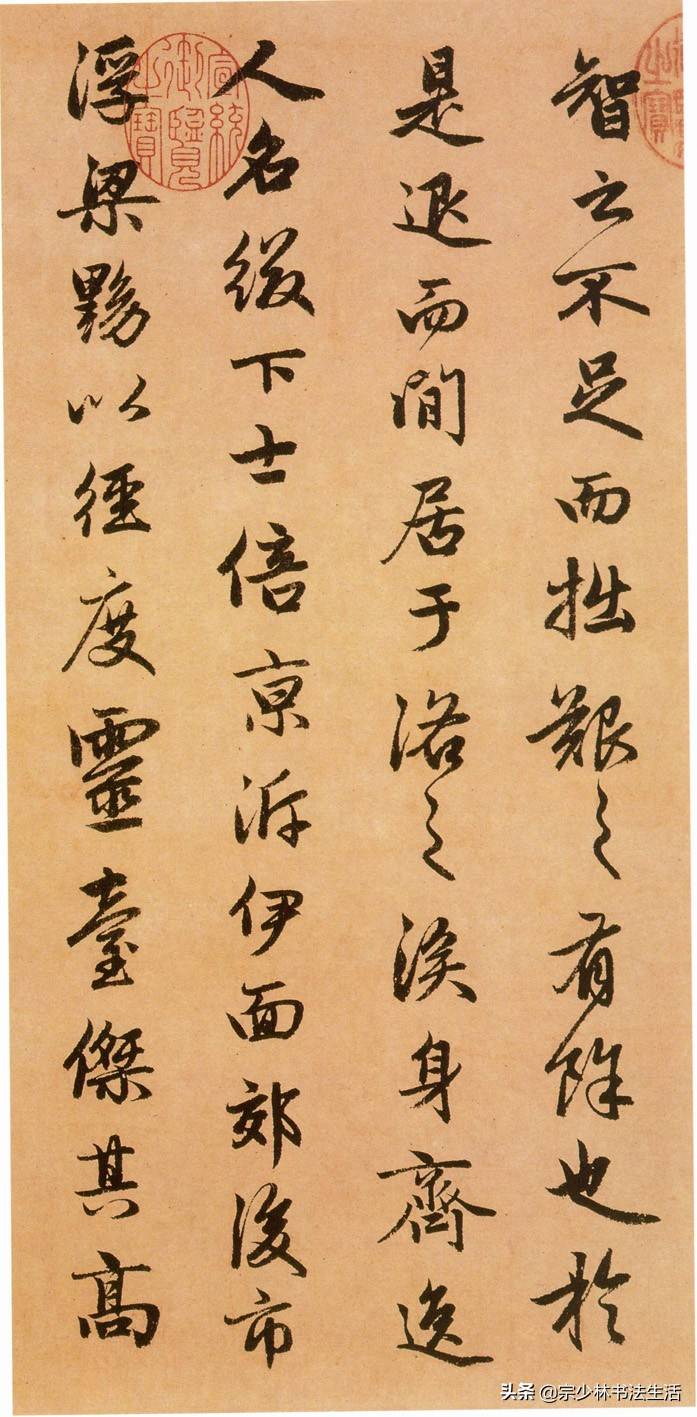 智之不足而拙艱之有餘也於
是退而閒居于洛之涘身齊逸
人名綴下士倍京泝伊面郊後市
浮梁黝以徑度靈臺傑其高
宣統
御覽
之寶
之寶
头条 @宗少林书法生活